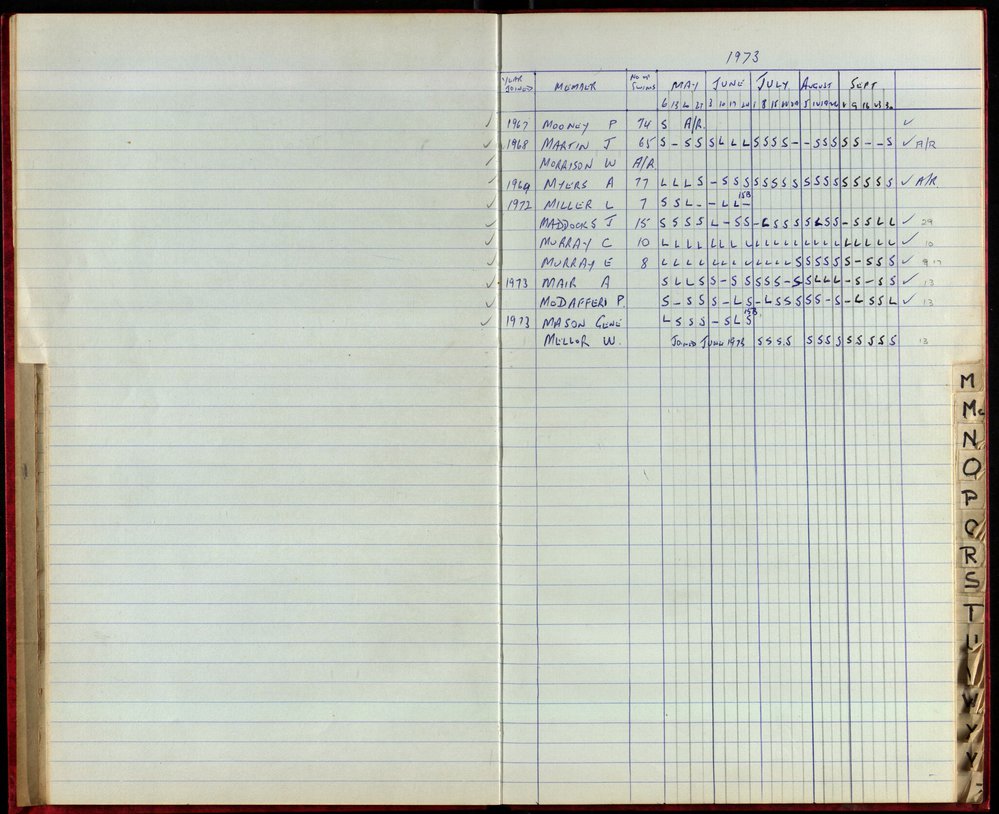 1973
YEAR JOINED MEMBER NO OF SWIMS MAY JUNE JULY AUGUST SEPT
6 13 20 27 3 10 17 24 1 8 15 22 29 5 12 19 26 2 9 16 23 30
✓ 1967 MOONEY P 74 S A/R. ✓
✓ 1968 MARTIN J 65 S - S S S L L L S S S S - - S S S S S - - S ✓ A/R
✓ MORRISON W A/R
✓ 1969 MYERS A 77 L L L S - S S S S S S S S S S S S S S S S S ✓ A/R.
✓ 1972 MILLER L 7 S S L - - L L - 15B
✓ MADDOCKS J 15 S S S S L - S S - L S S S S L S S - S S L L ✓ 29
✓ MURRAY C 10 L L L L L L L L L L L L L L L L L L L L L L ✓ 10
✓ MURRAY E 8 L L L L L L L L L L L L S S S S S S - S S S ✓ 17
✓ 1973 MAIR A S L L S S - S S S S S - S S L L L - S - S S ✓ 13
✓ McDAFFERI P. S - S S S - L S - L S S S S S - S - L S S L ✓ 13
✓ 1973 MASON GENE L S S S - S L S 15B
MELLOR W. JOINED JUNE 1973 S S S S S S S S S S S S S 13
M
Mc
N
O
P
Q
R
S
T
U
W
Y